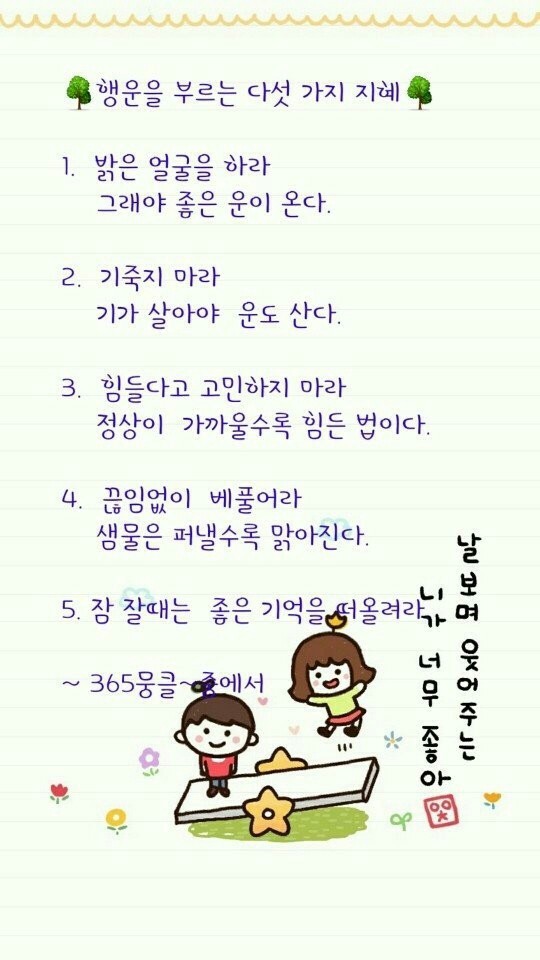 🌳행운을 부르는 다섯 가지 지혜🌳
1. 밝은 얼굴을 하라
그래야 좋은 운이 온다.
2. 기죽지 마라
기가 살아야 운도 산다.
3. 힘들다고 고민하지 마라
정상이 가까울수록 힘든 법이다.
4. 끊임없이 베풀어라
샘물은 퍼낼수록 맑아진다.
5. 잠 잘때는 좋은 기억을 떠올려라
~ 365뭉클~중에서
날 보며 웃어주는
니가 너무 좋아